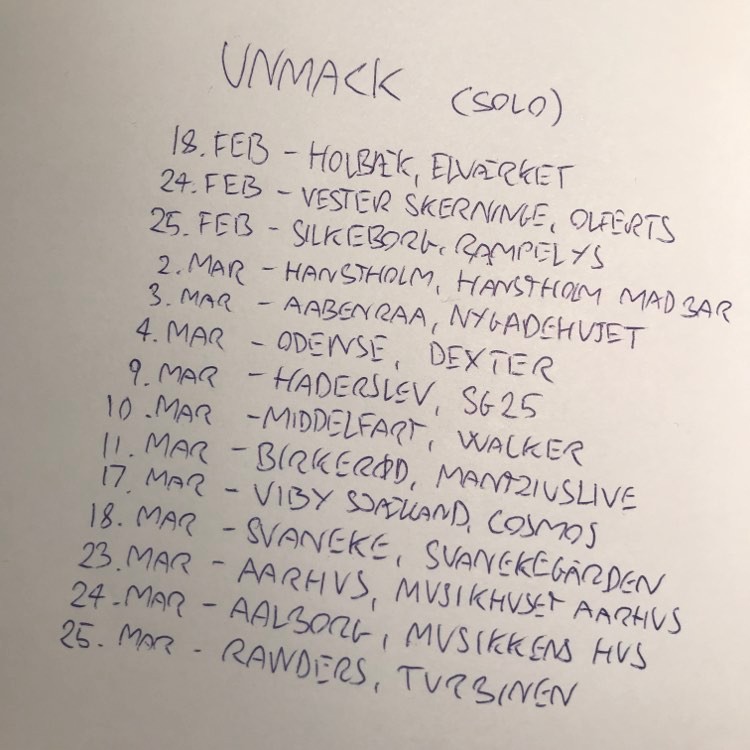 UNMACK (SOLO)
18. FEB - HOLBÆK, ELVÆRKET
24. FEB - VESTER SKERNINGE, OLFERTS
25. FEB - SILKEBORG, RAMPELYS
2. MAR - HANSTHOLM, HANSTHOLM MADBAR
3. MAR - AABENRAA, NYGADEHUSET
4. MAR - ODENSE, DEXTER
9. MAR - HADERSLEV, SG25
10. MAR - MIDDELFART, WALKER
11. MAR - BIRKERØD, MANTZIUSLIVE
17. MAR - VIBY SJÆLLAND, COSMOS
18. MAR - SVANEKE, SVANEKEGÅRDEN
23. MAR - AARHUS, MUSIKHUSET AARHUS
24. MAR - AALBORG, MUSIKKENS HUS
25. MAR - RANDERS, TURBINEN